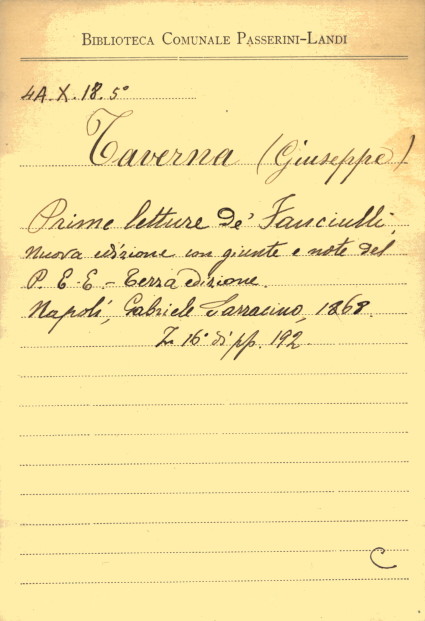 BIBLIOTECA COMUNALE PASSERINI-LANDI
4A.X.18.5°
Taverna (Giuseppe)
Prime letture de' Fanciulli,
nuova edizione con giunte e note del
P. E-E.- Terza edizione.
Napoli, Gabriele Sarracino, 1868.
In 16° di pp. 192
C